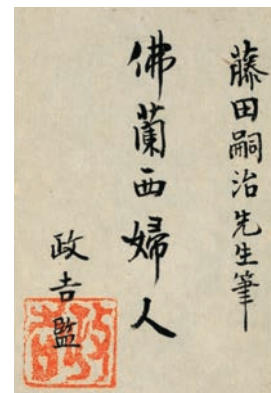 藤田嗣治先生筆
佛蘭西婦人
政吉監
政吉